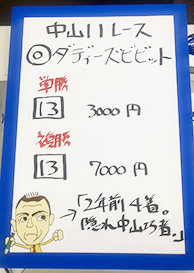 中山11レース
◎ダディーズビビット
単勝
13 3000円
複勝
13 7000円
→「2年前4着。
隠れ中山巧者。」